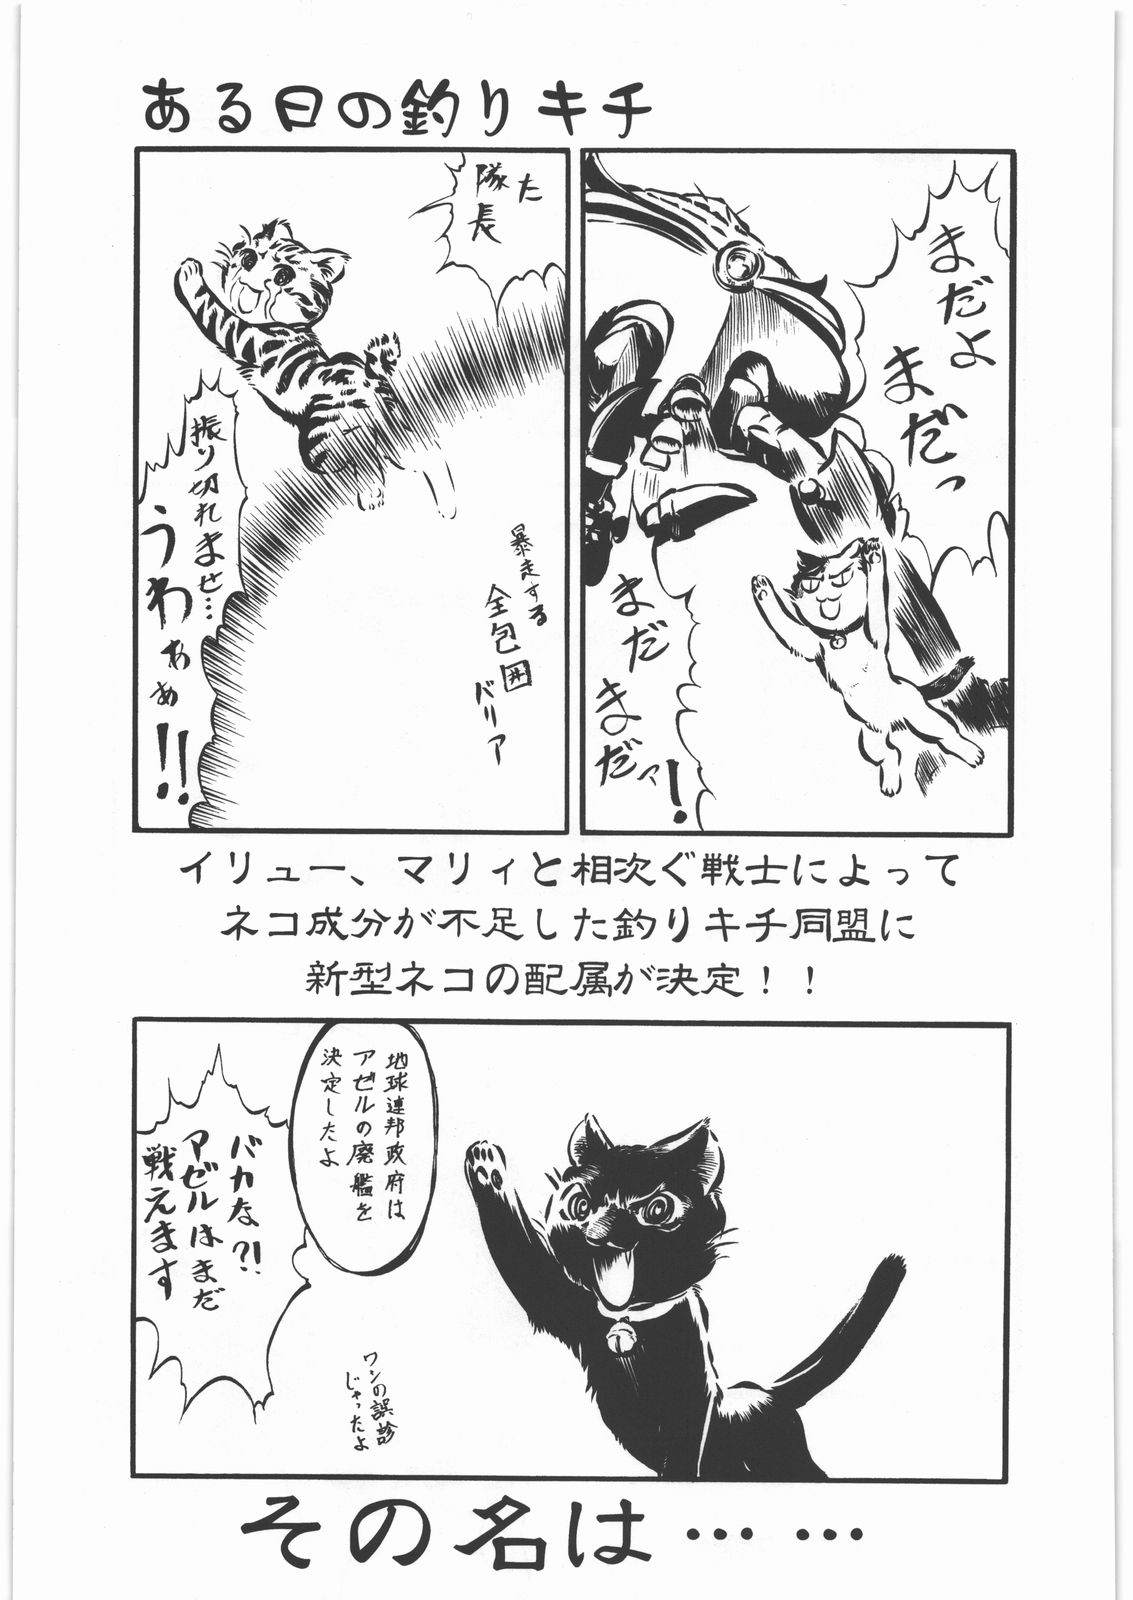 ある日の釣りキチ
まだよ
まだっ
まだ
まだァ!
た
隊長
振り切れませ…
うわぁぁ!!
暴走する
全包囲
バリア
イリュー、マリィと相次ぐ戦士によって
ネコ成分が不足した釣りキチ同盟に
新型ネコの配属が決定!!
地球連邦政府は
アゼルの廃艦を
決定したよ
バカな?!
アゼルはまだ
戦えます
ワシの誤診
じゃったよ
その名は……